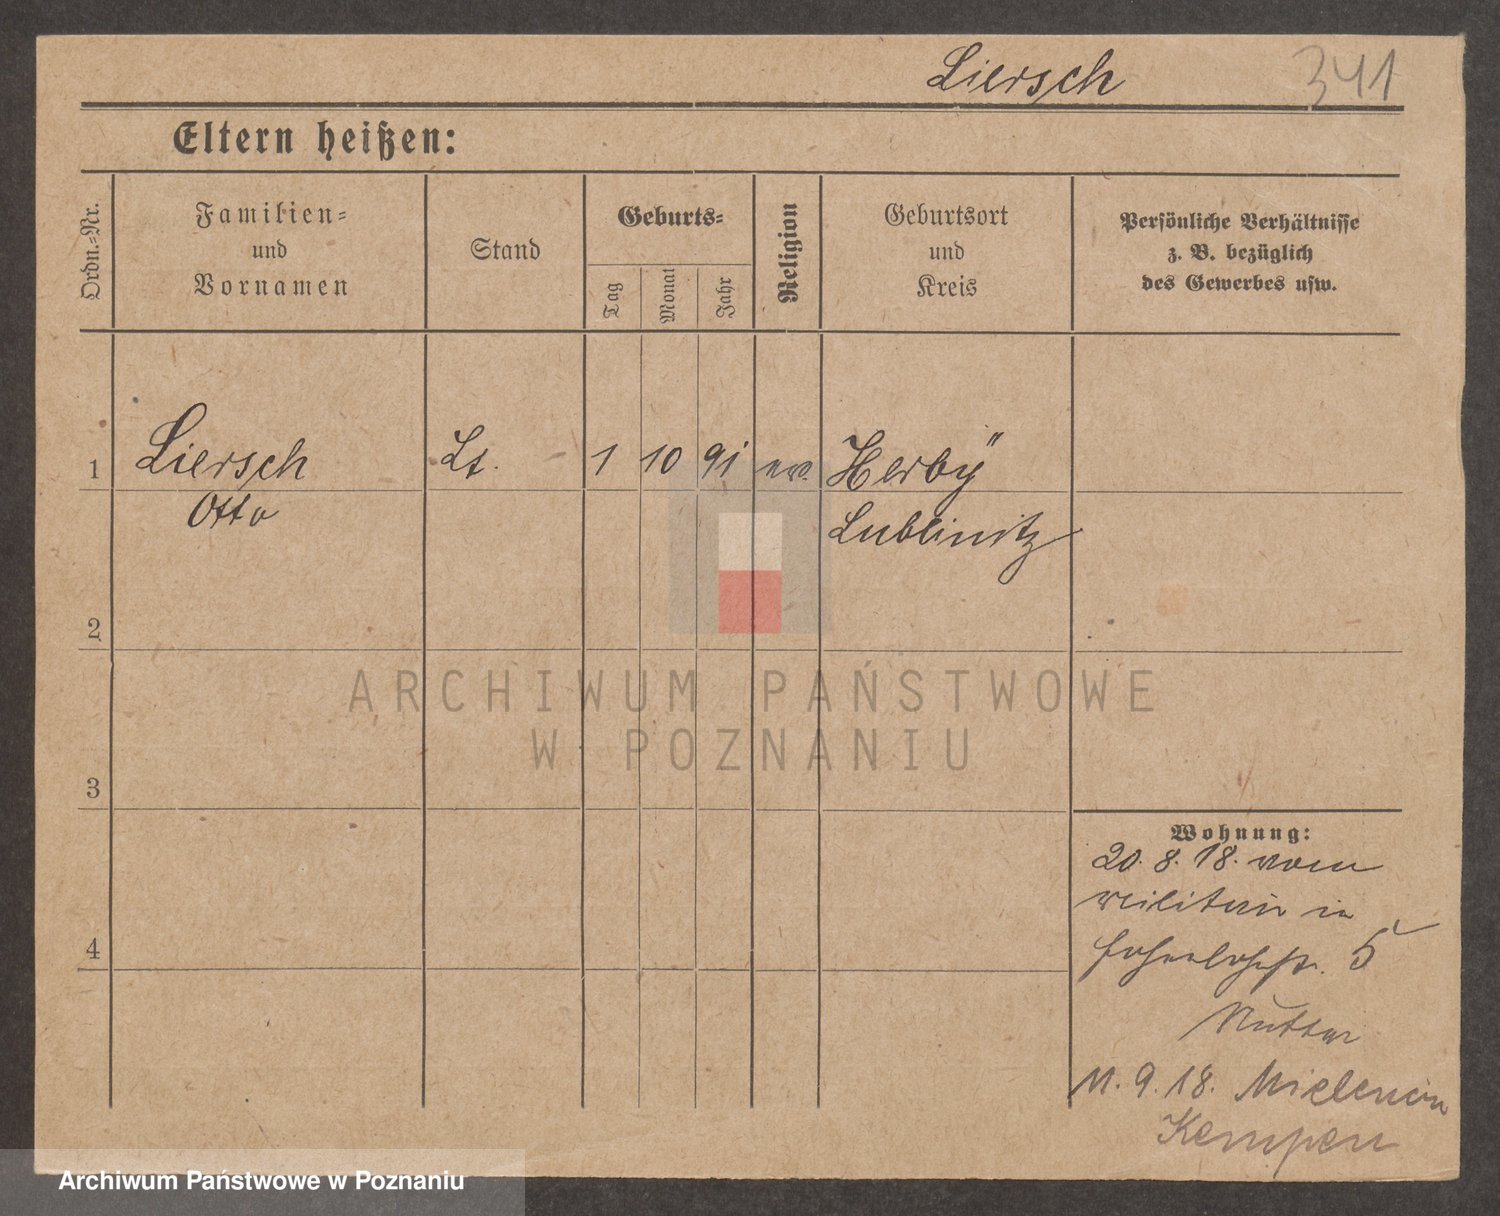 Liersch 341
Eltern heißen:
Ordn.-Nr.
Familien-
und
Vornamen
Stand
Geburts-
Tag
Monat
Jahr
Religion
Geburtsort
und
Kreis
Persönliche Verhältnisse
z. B. bezüglich
des Gewerbes usw.
1 Liersch Lt. 1 10 91 ev. Herby
Otto Lublinitz
2
3
4
Wohnung:
20.8.18. vom
Militär in
5
Mutter
11.9.18.
Kempen
ARCHIWUM PAŃSTWOWE
W POZNANIU
Archiwum Państwowe w Poznaniu